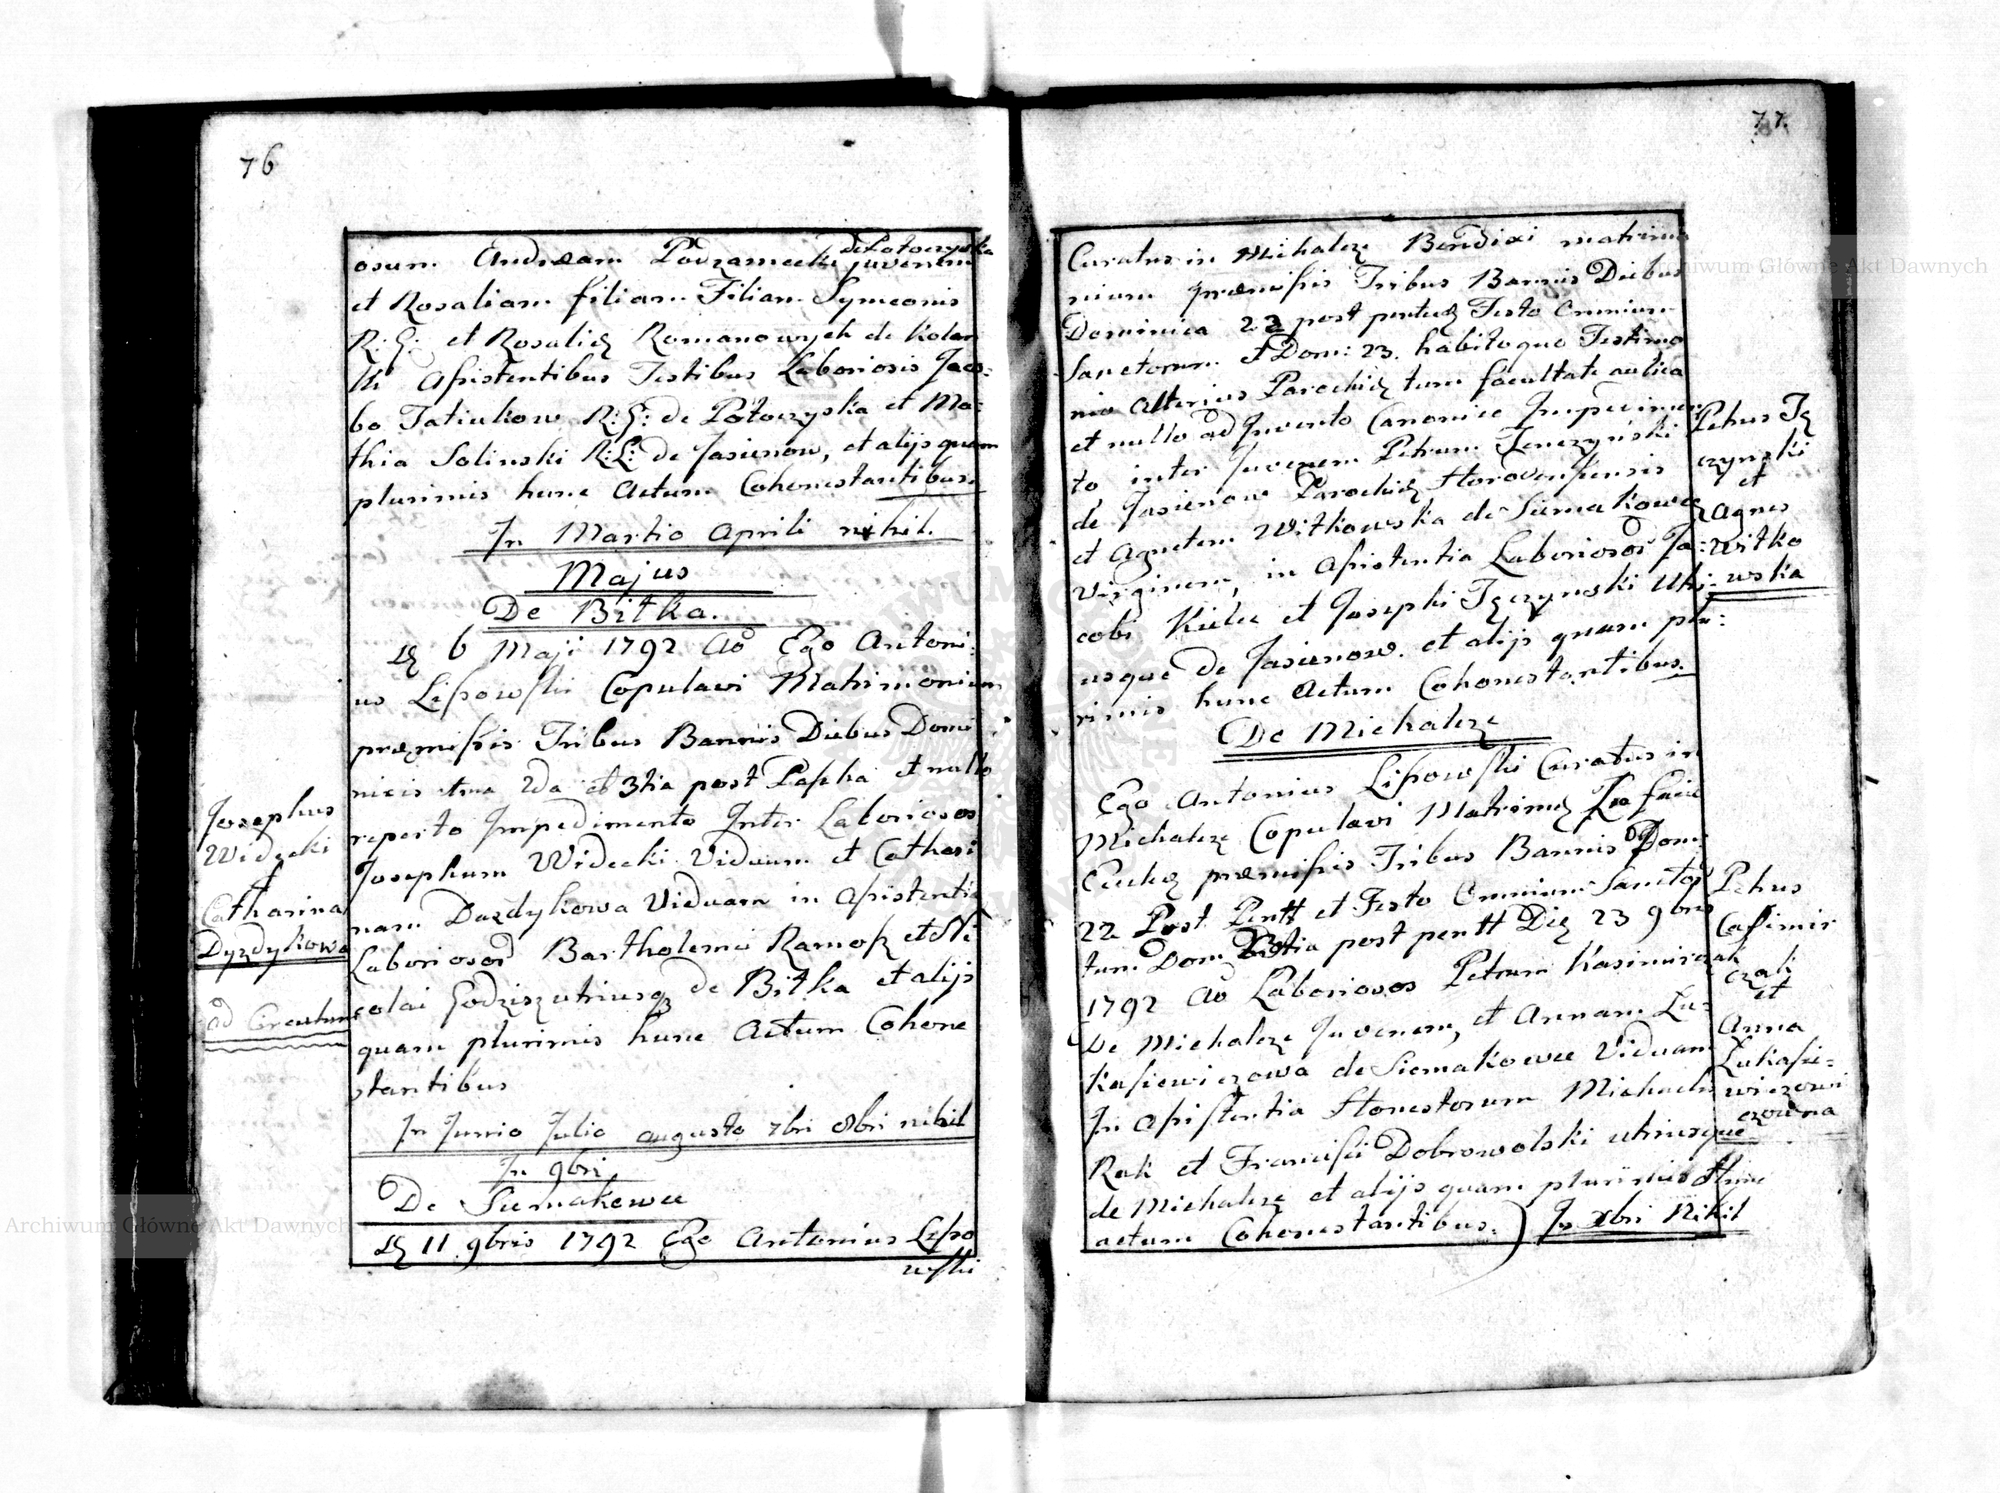 76
osum Andream Podzamecki de Potoczyska juvenem
et Rosaliam filiam Filiam Symeonis
R: G: et Rosaliæ Romanowych de Kolan
ki Assistentibus Testibus Laboriosis Jaco:
bo Tatiukow R: G: de Potoczyska et Ma:
thia Solinski R: L: de Jasienow, et alijs quam
plurimis hunc Actum Cohonestantibus.
In Martio Aprili nihil.
Majus
De Bitka.
Dię 6 Maji 1792 Aō Ego Antoni:
us Lipowski Copulavi Matrimonium
præmissis Tribus Bannis Diebus Domi
nicis 1ma 2da et 3tia post Pascha et nullo
reperto Impedimento Inter Laboriosos
Josephum Widecki Viduum et Cathari
nam Duzdykowa Viduam in Assistenti
Laboriosor Bartholemei Ramosz et Ni
colai Godzisz utriusq de Bitka et alijs
quam plurimis hunc Actum Cohone
stantibus
In Junio Julio augusto 7bri 8bri nihil
In 9bri
De Siemakowce
Dię 11 9bris 1792 Ego Antonius Lipo
wski
Josephus
Widecki
et
Catharina
Dyzdykowa
ad
77
Curatus in Michalcze Bendixi matrimo
nium præmissis Tribus Bannis Diebus
Dominica 22 post pentec Festo Omnium
Sanctorum et Dom: 23. habitoque Testimo
nio Alterius Parochiæ tum facultate aulica
et nullo ad Invento Canonico Impedimen
to inter Juvenem Petrum Tenczynski
de Jasienow Parochiæ Horodensensis
et Agnetem Witkowska de Siemakowce
Virginem, in Assistentia Laboriosor Ja:
cobi Kielec et Josephi Tęczynski utri:
usque de Jasienow. et alijs quam plu:
rimis hunc Actum Cohonestantibus.
De Michalcze
Ego Antonius Lipowski Curatus in
Michalcze Copulavi Matrimo In facie
Ecclæ præmissis Tribus Bannis Dom:
22 Post Pentt et Festo Omnium Sanctor
tum Dom 23tia post pentt Dię 23 9bris
1792 Aō Laboriosos Petrum Kasimirczak
De Michalcze Juvenem, et Annam Lu:
kasiewiczowa de Siemakowce Viduam
In Assistentia Honestorum Michaelis
Rak et Francisci Dobrowolski utriusque
de Michalcze et alijs quam plurimis Hunc
actum Cohonestantibus.) In Xbri Nihil
Petrus Tę
czynski
et
Agnes
Witko
wska
Petrus
Casimir
czak
et
Anna
Lukasie:
wiczowi
czowna
Archiwum Główne Akt Dawnych
Archiwum Główne Akt Dawnych